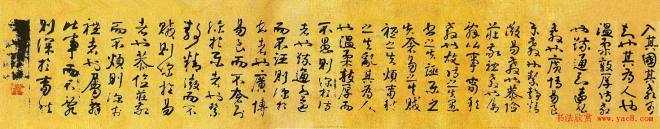 入其國其教可
知也其為人也
溫柔敦厚詩教
也疏通知遠書
教也廣博易良
樂教也絜靜精
微易教也恭儉
莊敬禮教也屬
辭比事春秋
教也故詩之失愚
書之失誣樂之
失奢易之失賊
禮之失煩春秋
之失亂其為人
也溫柔敦厚而
不愚則深於詩
者也疏通知遠
而不誣則深於
書者也廣博
易良而不奢則
深於樂者也絜
靜精微而不
賊則深於易
者也恭儉莊敬
而不煩則深於
禮者也屬辭
比事而不亂
則深於春秋
书法欣赏
www.yac8.com